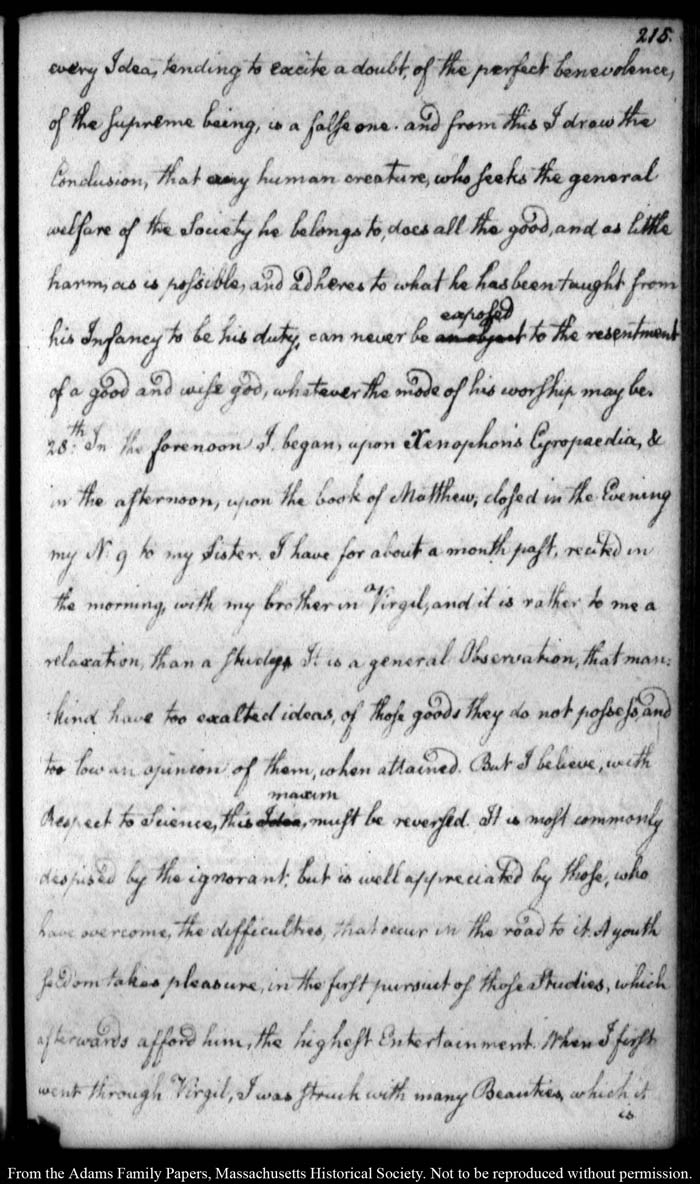 215.
every Idea, tending to excite a doubt, of the perfect benevolence,
of the supreme being, is a false one. and from this I draw the
Conclusion, that any human creature, who seeks the general
welfare of the Society he belongs to, does all the good, and as little
harm, as is possible, and adheres to what he has been taught from
exposed
his Infancy to be his duty, can never be an object to the resentment
of a good and wise god, whatever the mode of his worship may be.
28.th In the forenoon I began, upon Xenophon's Cyropaedia, &
in the afternoon, upon the book of Matthew, closed in the Evening
my N: 9 to my Sister. I have for about a month past, recited in
the morning, with my brother in Virgil, and it is rather to me a
relaxation, than a study. It is a general Observation, that man:
:kind have too exalted ideas, of those goods they do not possess, and
too low an opinion of them, when attained. But I believe, with
maxim
Respect to Science, this Idea, must be reversed. It is most commonly
despised by the ignorant, but is well appreciated by those, who
have overcome, the difficulties, that occur in the road to it. A youth
seldom takes pleasure, in the first pursuit of those Studies, which
afterwards afford him, the highest Entertainment. When I first
went through Virgil, I was struck with many Beauties, which it
is
From the Adams Family Papers, Massachusetts Historical Society. Not to be reproduced without permission.